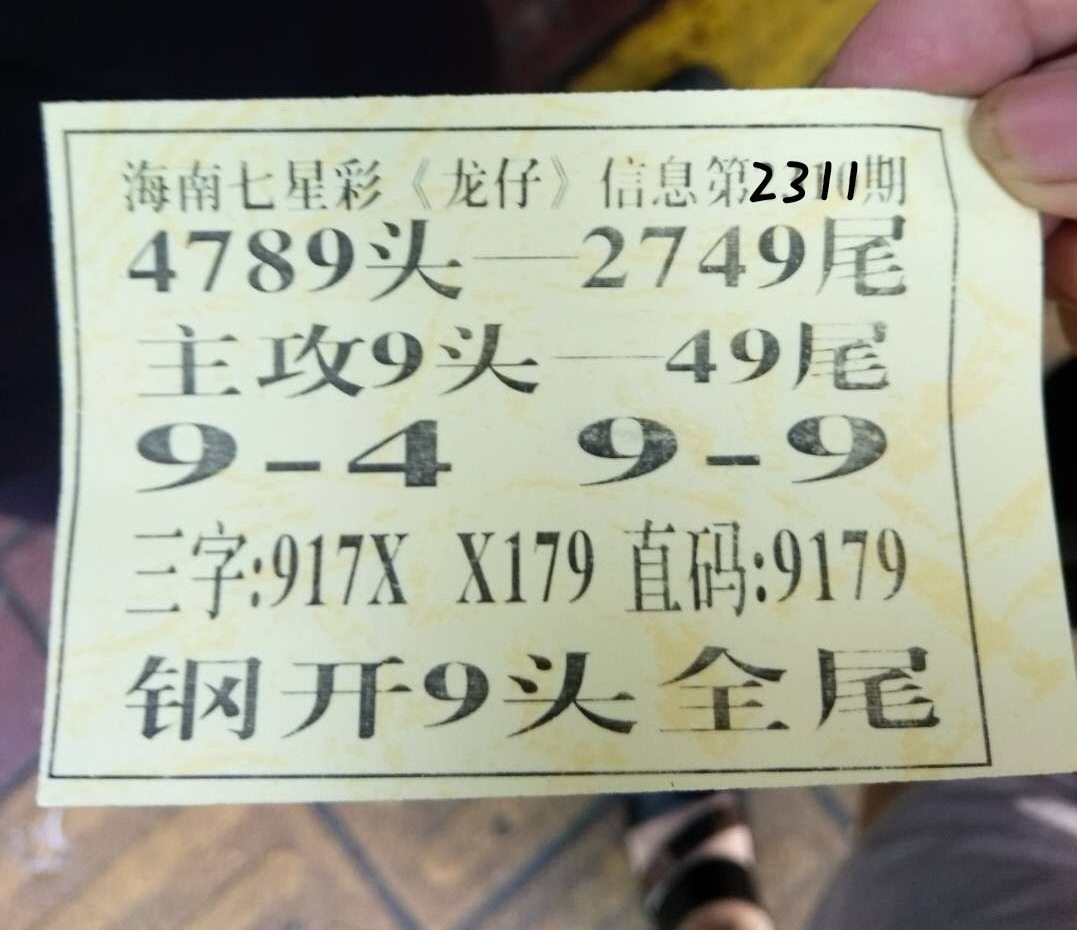 海南七星彩《龙仔》信息第2311期
4789头—2749尾
主攻9头—49尾
9-4 9-9
三字:917X X179 直码:9179
钢开9头全尾